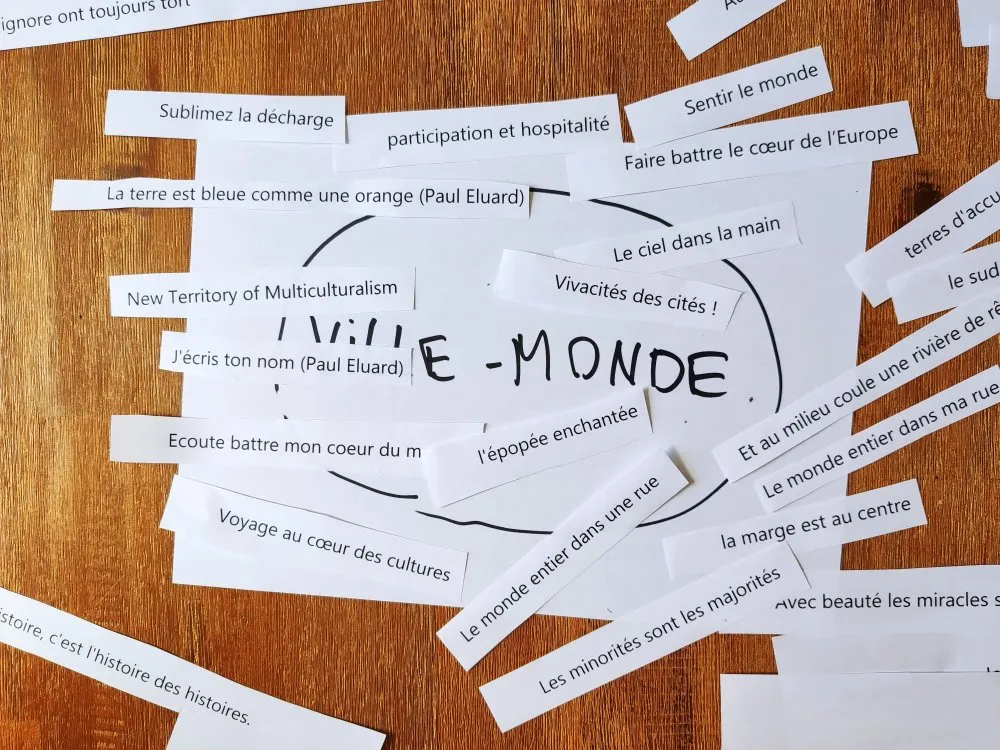 ignore ont toujours tort
Sublimez la décharge
participation et hospitalité
Sentir le monde
Faire battre le cœur de l'Europe
La terre est bleue comme une orange (Paul Eluard)
Le ciel dans la main
terres d'accu
le sud
New Territory of Multiculturalism
Vivacités des cités !
VILLE-MONDE
J'écris ton nom (Paul Eluard)
Et au milieu coule une rivière de rê
Le monde entier dans ma rue
l'épopée enchantée
Ecoute battre mon coeur du m
Le monde entier dans une rue
la marge est au centre
Voyage au cœur des cultures
Les minorités sont les majorités
Avec beauté les miracles s
stoire, c'est l'histoire des histoires.